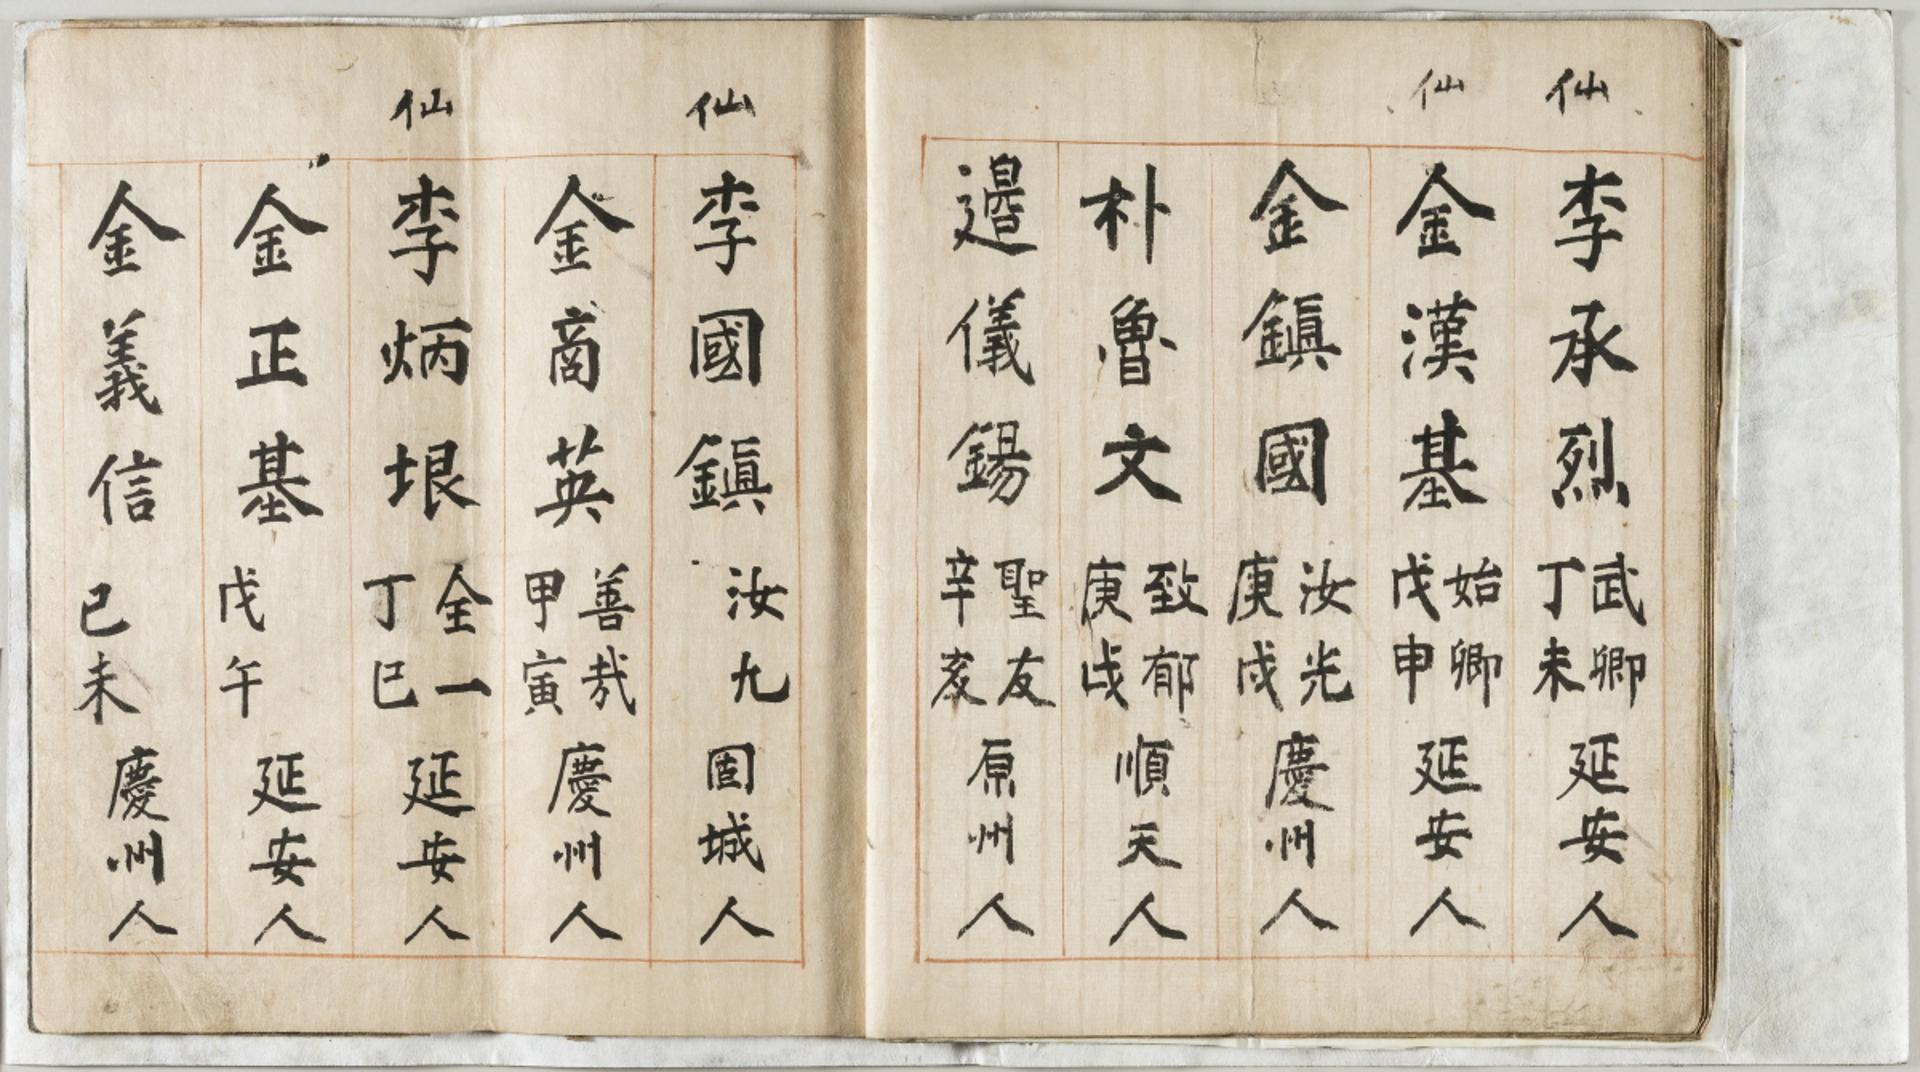 仙
李承烈 武卿 丁未 延安人
仙
金漢基 始卿 戊申 延安人
金鎭國 汝光 庚戌 慶州人
朴魯文 致郁 庚戌 順天人
邉儀錫 聖友 辛亥 原州人
仙
李國鎭 汝九 固城人
金商英 善哉 甲寅 慶州人
仙
李炳垠 全一 丁巳 延安人
金正基 戊午 延安人
金義信 己未 慶州人